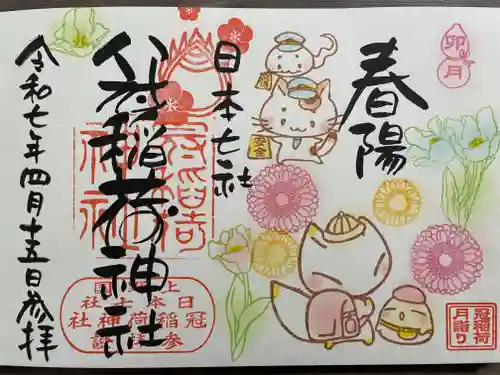 卯月
春陽
日本七社
冠稲荷神社
令和七年四月十五日参拝
安全
冠稲荷
神社
日本七社
冠稲荷神社
冠稲荷
月詣り